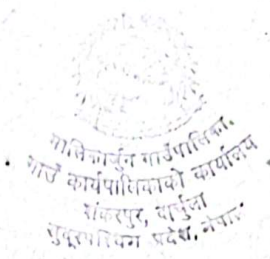 मालिकार्जुन गाउँपालिका,
गाउँ कार्यपालिकाको कार्यालय
शंकरपुर, दार्चुला
सुदूरपश्चिम प्रदेश, नेपाल